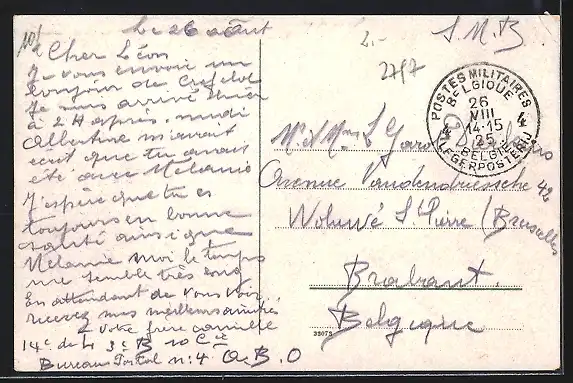 Le 26 aout
Cher Léon
Je vous envoi un
bonjour de Crefeld
Je suis arrivé hier
à 2 H après-midi
Albertine m'avait
ecrit que tu avais
été avec Mélanie
J'espère que tu es
toujours en bonne
santé ainsi que
Mélanie moi le temps
me semble très long
En attendant de vous voir
recevez mes meilleurs amitiés
Votre frère Camille
14e de L 3e B 10 Cie
Bureau Postal n: 4 A.B.O
S.M.B
2797
POSTES MILITAIRES
BELGIQUE
26
VIII
14-15
25
4 4
BELGIE
LEGERPOSTERIJ
Mr & Mme L
Avenue Vandendriessche 42
Woluwé St Pierre (Bruxelles
Brabant.
Belgique